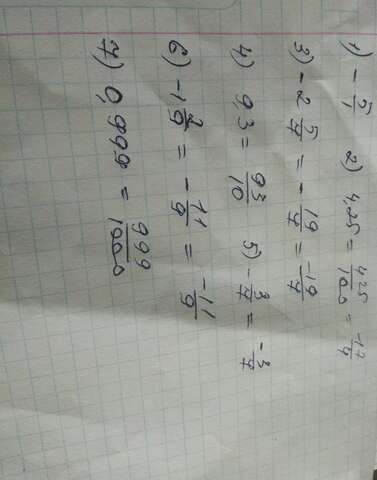 1) -5/1 2) 4,25 = 425/100 = -17/4
3) -2 5/7 = -19/7 = -19/7
4) 9,3 = 93/10 5) -3/4 = -3/4
6) -1 2/9 = -11/9 = -11/9
7) 0,999 = 999/1000